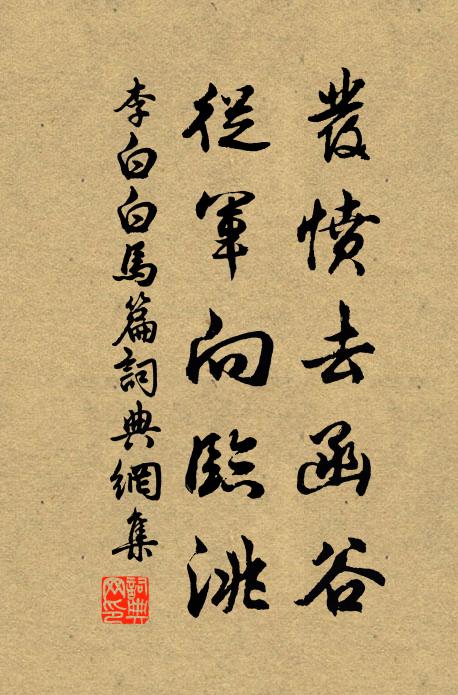 發憤去函谷
從軍向臨洮
李白白馬篇詞典網集
詞典網印